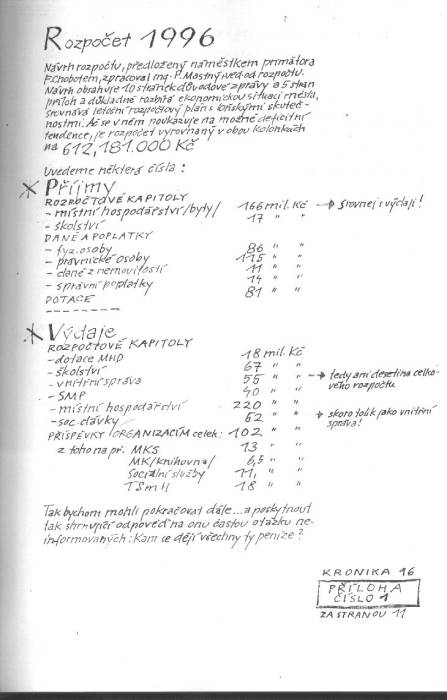 Rozpočet 1996
Návrh rozpočtu, předložený náměstkem primátora
F.Chobotem, zpracoval ing. P. Mostný ved. od. rozpočtu.
Návrh obsahuje 10 stránek důvodové zprávy a 5 stran
příloh a důkladně rozbírá ekonomickou situaci města,
srovnává letošní rozpočtový plán s loňskými skuteč-
nostmi. Ač se v něm poukazuje na možné deficitní
tendence, je rozpočet vyrovnaný v obou kolonkách
na 612,181.000 Kč
Uvedeme některá čísla:
Příjmy
ROZPOČTOVÉ KAPITOLY
- místní hospodářství /byty/ 166 mil. Kč → Srovnej s výdaji!
- školství 17 " "
DANĚ A POPLATKY
- fyz. osoby 86 " "
- právnické osoby 115 " "
- daně z nemovitostí 11 " "
- správní poplatky 14 " "
DOTACE 81 " "
Výdaje
ROZPOČTOVÉ KAPITOLY
- dotace MHD 18 mil. Kč
- školství 67 " "
- vnitřní správa 55 " " → tedy ani desetina celko-
vého rozpočtu
- SMP 40 " "
- místní hospodářství 220 " "
- soc. dávky 52 " " → skoro tolik jako vnitřní
správa!
PŘÍSPĚVKY ORGANIZACÍM celek: 102 " "
z toho na př. MKS 13 " "
MK /knihovna/ 6,5 " "
Sociální služby 11, " "
TSmH 18 " "
Tak bychom mohli pokračovat dále... a poskytnout
tak shrnující odpověď na onu častou otázku ne-
informovaných: Kam se dějí všechny ty peníze?
KRONIKA 16
PŘÍLOHA
ČÍSLO 1
ZA STRANOU 11